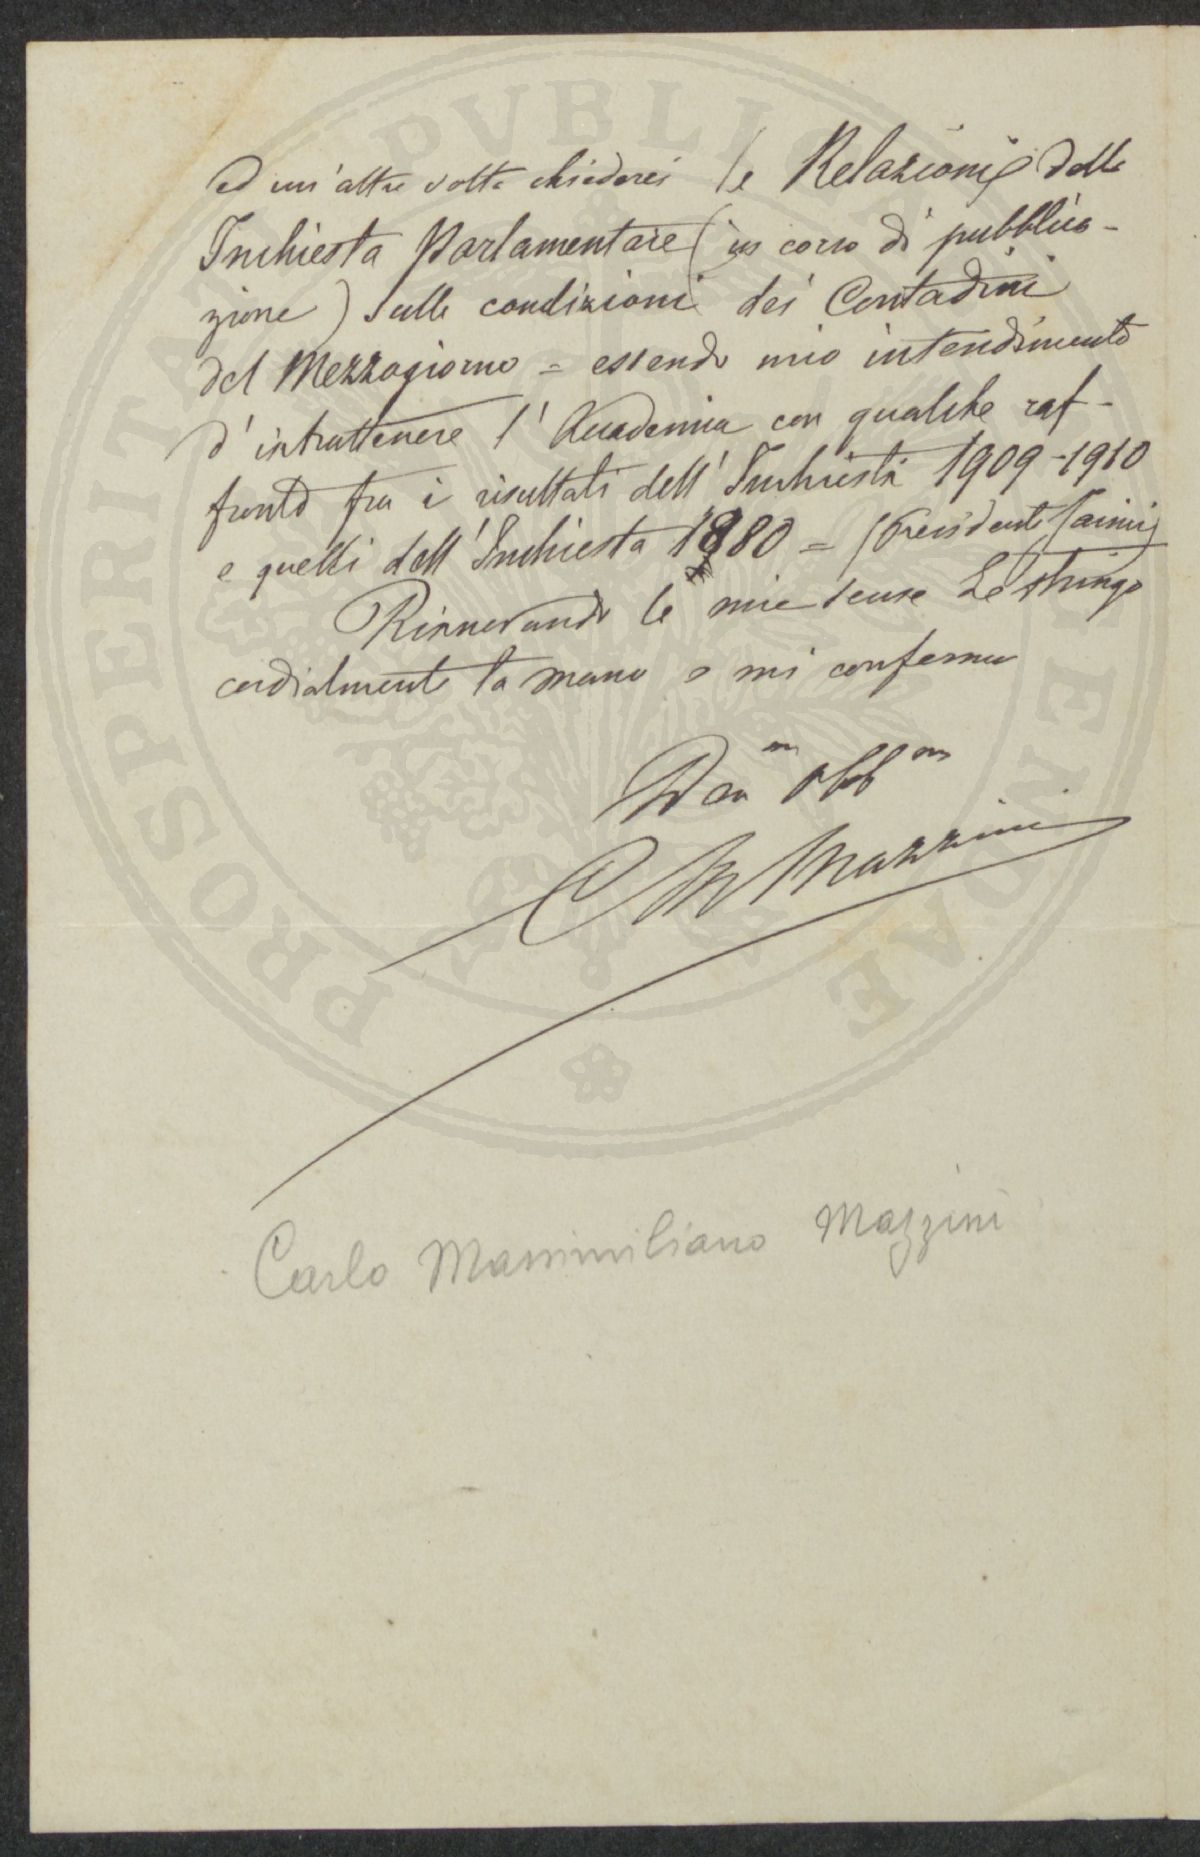 ed un'altra volta chiederei le Relazioni della
Inchiesta Parlamentare (in corso di pubblica-
zione) sulle condizioni dei Contadini
del Mezzogiorno = essendo mio intendimento
d'intrattenere l'Accademia con qualche raf-
fronto fra i risultati dell'Inchiesta 1909-1910
e quelli dell'Inchiesta 1880 = (Presidente Faina)
Rinnovando le mie scuse Le stringo
cordialmente la mano e mi confermo
Dev mo obb mo
C M Mazzini
Carlo Massimiliano Mazzini
PVBLICA
PROSPERITAS